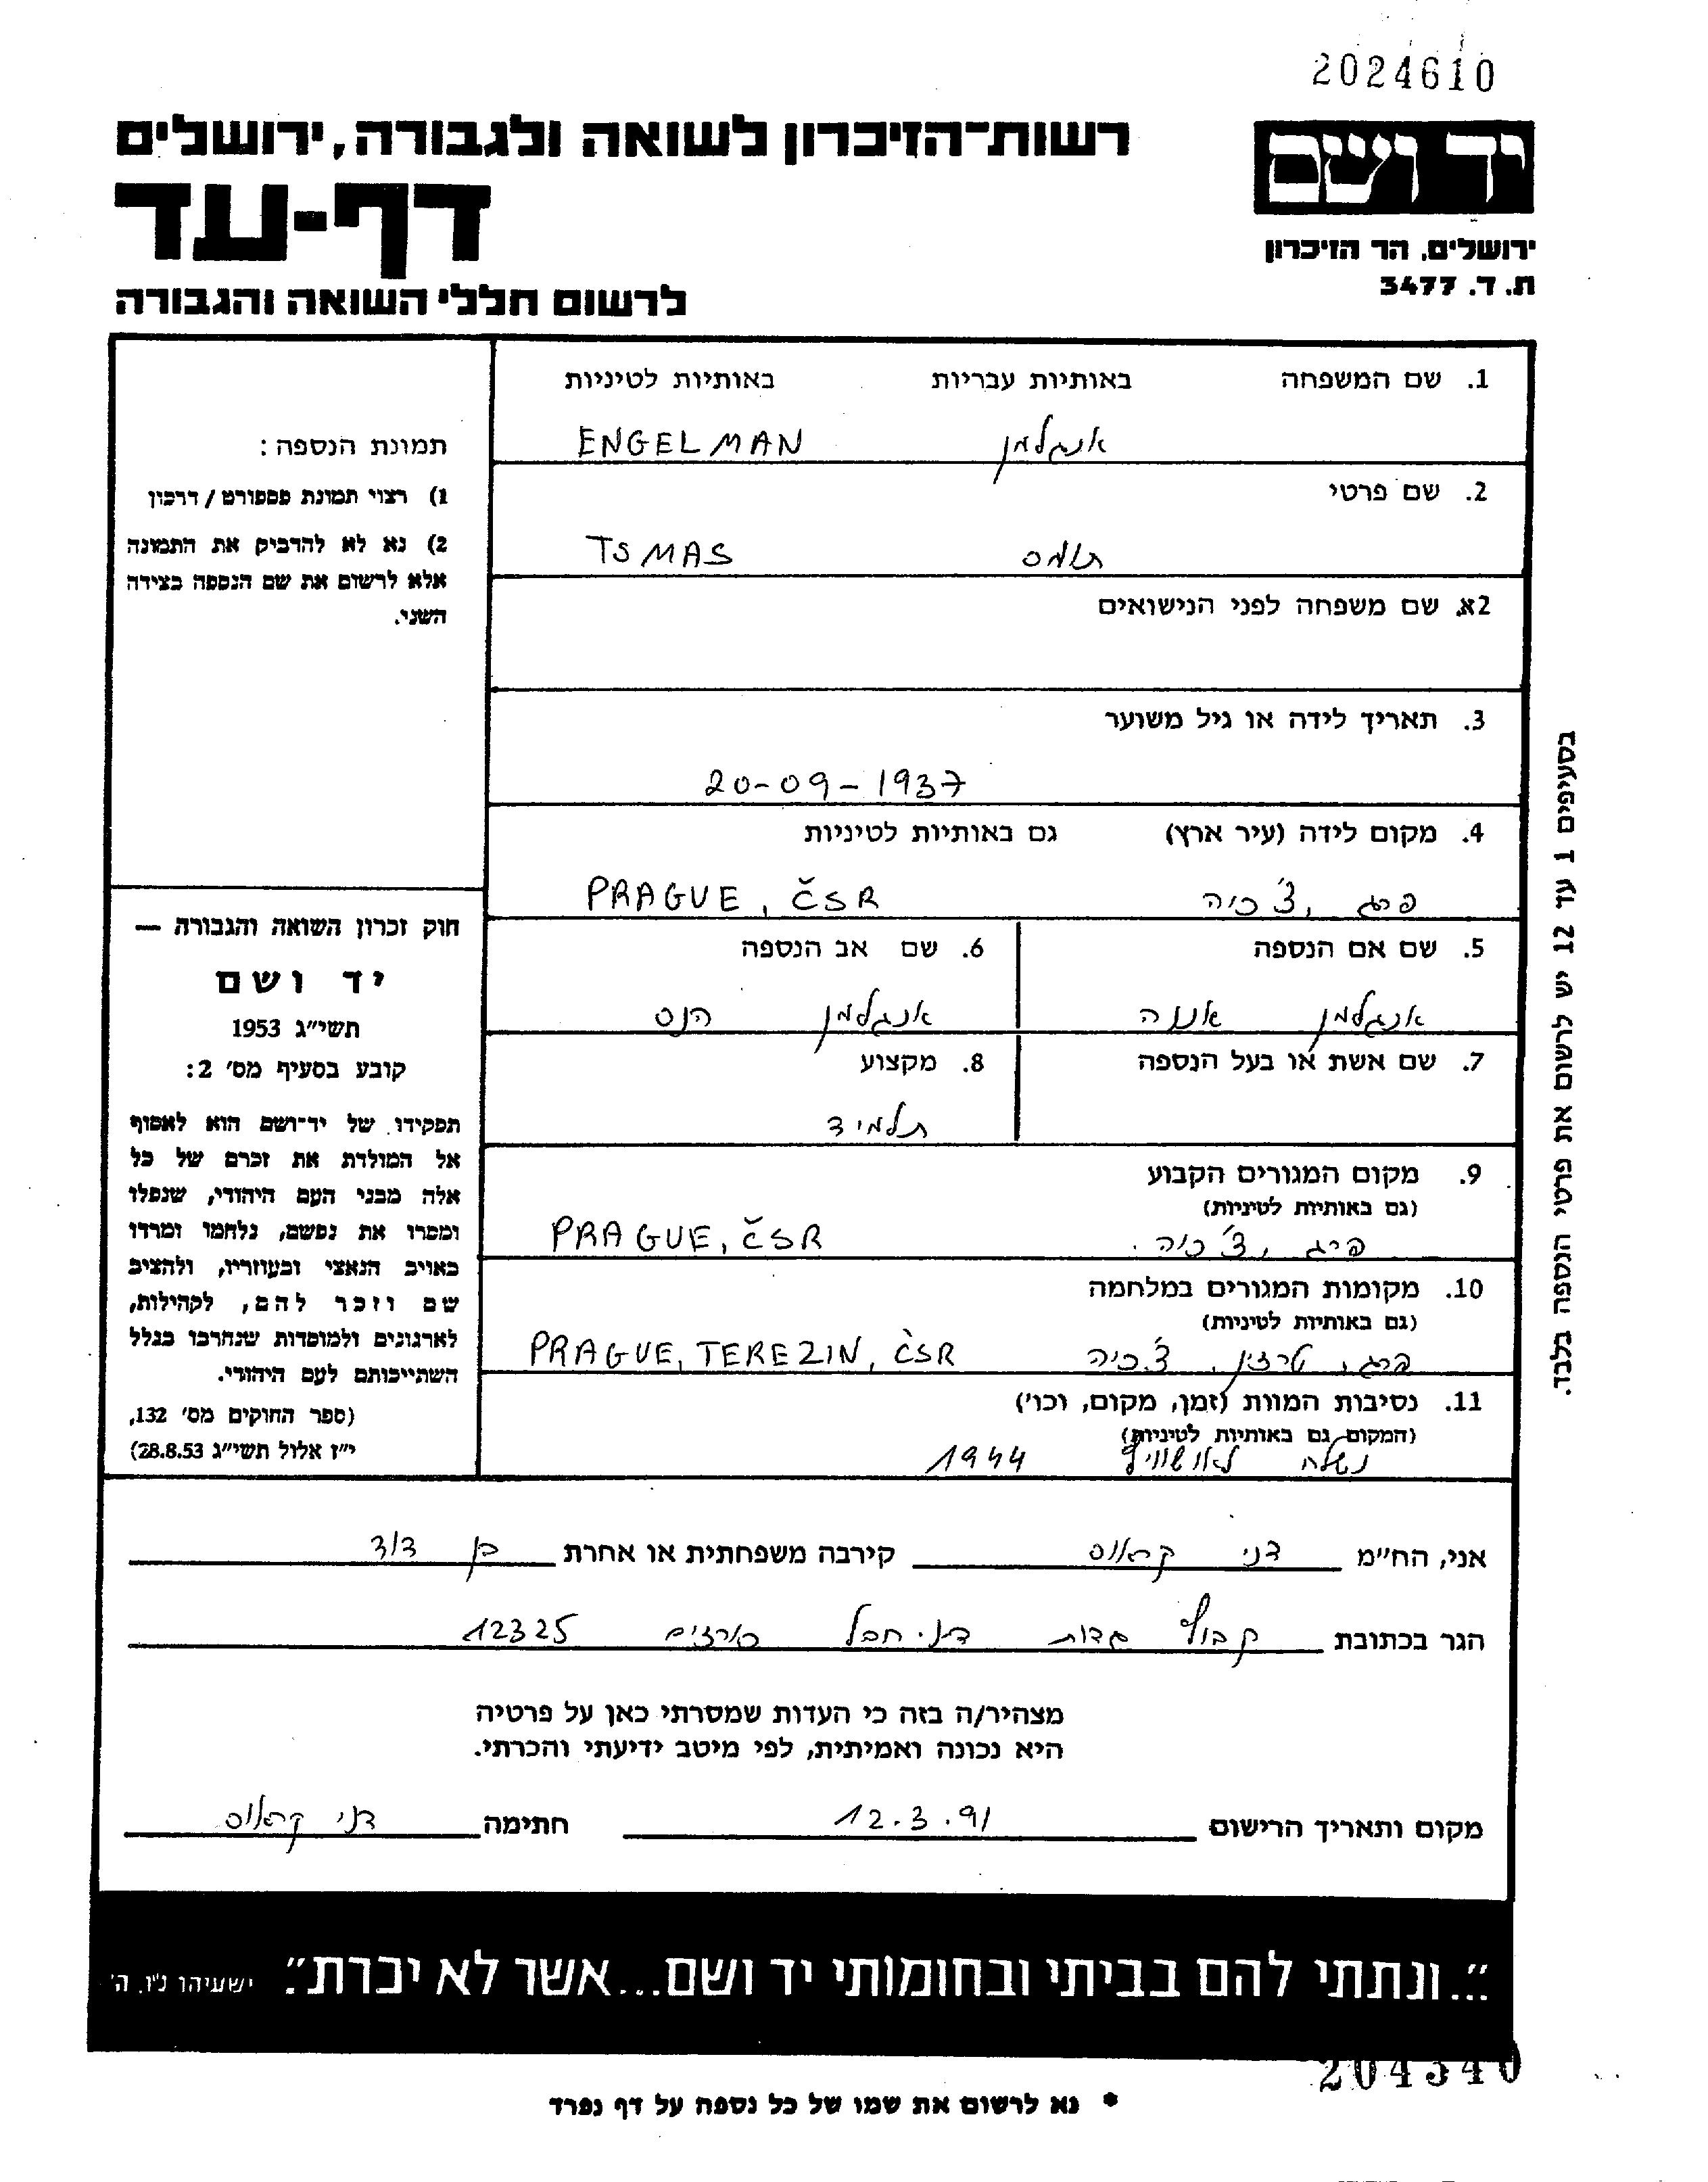 2024610
יד ושם
רשות־הזיכרון לשואה ולגבורה, ירושלים
דף-עד
ירושלים, הר הזיכרון
ת. ד. 3477
לרשום חללי השואה והגבורה
1. שם המשפחה באותיות עבריות באותיות לטיניות
אנגלמן ENGELMAN
2. שם פרטי
תומס TSMAS
2א. שם משפחה לפני הנישואים
3. תאריך לידה או גיל משוער
20-09-1937
4. מקום לידה (עיר ארץ) גם באותיות לטיניות
פרג, צ'כיה PRAGUE, ČSR
5. שם אם הנספה 6. שם אב הנספה
אנגלמן אננה אנגלמן הנס
7. שם אשת או בעל הנספה 8. מקצוע
תלמיד
9. מקום המגורים הקבוע
(גם באותיות לטיניות)
פרג, צ'כיה. PRAGUE, ČSR
10. מקומות המגורים במלחמה
(גם באותיות לטיניות)
פרג, טרזין, צ'כיה PRAGUE, TEREZIN, ČSR
11. נסיבות המוות (זמן, מקום, וכו')
(המקום גם באותיות לטיניות)
נשלח לאושוויץ 1944
תמונת הנספה:
1) רצוי תמונת פספורט / דרכון
2) נא לא להדביק את התמונה
אלא לרשום את שם הנספה בצידה
השני.
חוק זכרון השואה והגבורה —
יד ושם
תשי״ג 1953
קובע בסעיף מס' 2:
תפקידו של יד־ושם הוא לאסוף
אל המולדת את זכרם של כל
אלה מבני העם היהודי, שנפלו
ומסרו את נפשם, נלחמו ומרדו
באויב הנאצי ובעוזריו, ולהציב
שם וזכר להם, לקהילות,
לארגונים ולמוסדות שנחרבו בגלל
השתייכותם לעם היהודי.
(ספר החוקים מס' 132,
י״ז אלול תשי״ג 28.8.53)
בסעיפים 1 עד 12 יש לרשום את פרטי הנספה בלבד.
אני, הח״מ דני קראוס קירבה משפחתית או אחרת בן דוד
הגר בכתובת קבוץ גדות ד.נ. חבל כורזים 12325
מצהיר/ה בזה כי העדות שמסרתי כאן על פרטיה
היא נכונה ואמיתית, לפי מיטב ידיעתי והכרתי.
מקום ותאריך הרישום 12.3.91 חתימה דני קראוס
"...ונתתי להם בביתי ובחומותי יד ושם...אשר לא יכרת". ישעיהו נ״ו, ה'
204340
* נא לרשום את שמו של כל נספה על דף נפרד